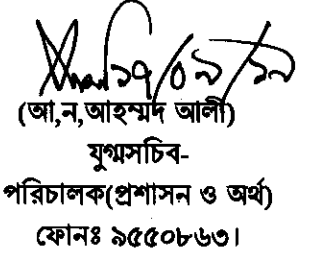 ১৭/০৯/১৯
(আ,ন,আহম্মদ আলী)
যুগ্মসচিব-
পরিচালক(প্রশাসন ও অর্থ)
ফোনঃ ৯৫৫০৮৬৩।